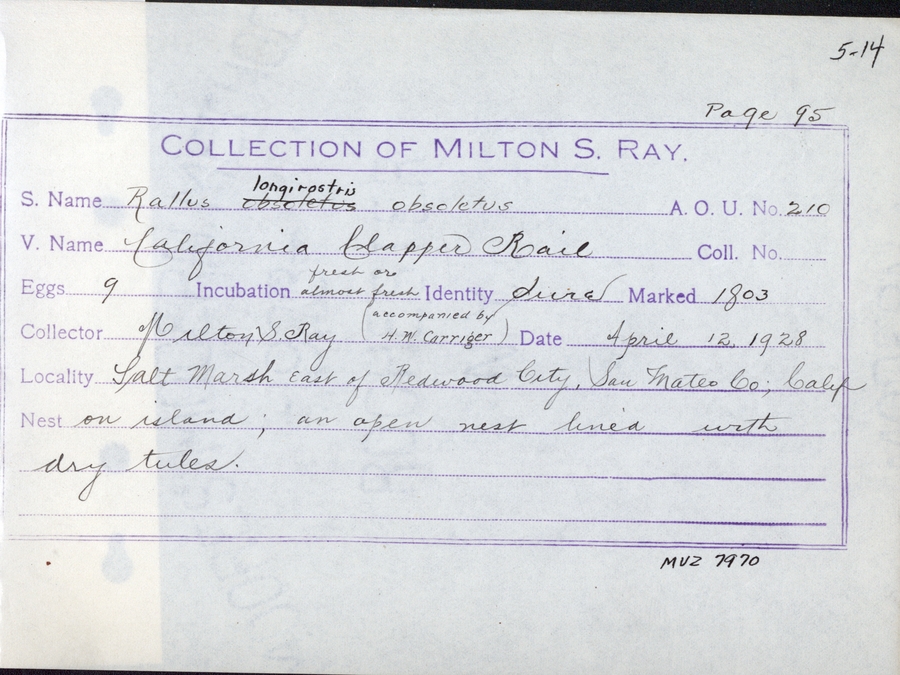 5-14
Page 95
COLLECTION OF MILTON S. RAY.
longirostris
S. Name Rallus obsoletus obsoletus A. O. U. No. 210
V. Name California Clapper Rail Coll. No.
fresh or
Eggs 9 Incubation almost fresh Identity Sure Marked 1803
accompanied by
Collector Milton S. Ray ( H. W. Carriger ) Date April 12, 1928
Locality Salt Marsh East of Redwood City, San Mateo Co; Calif
Nest on island; an open nest lined with
dry tules.
MVZ 7970